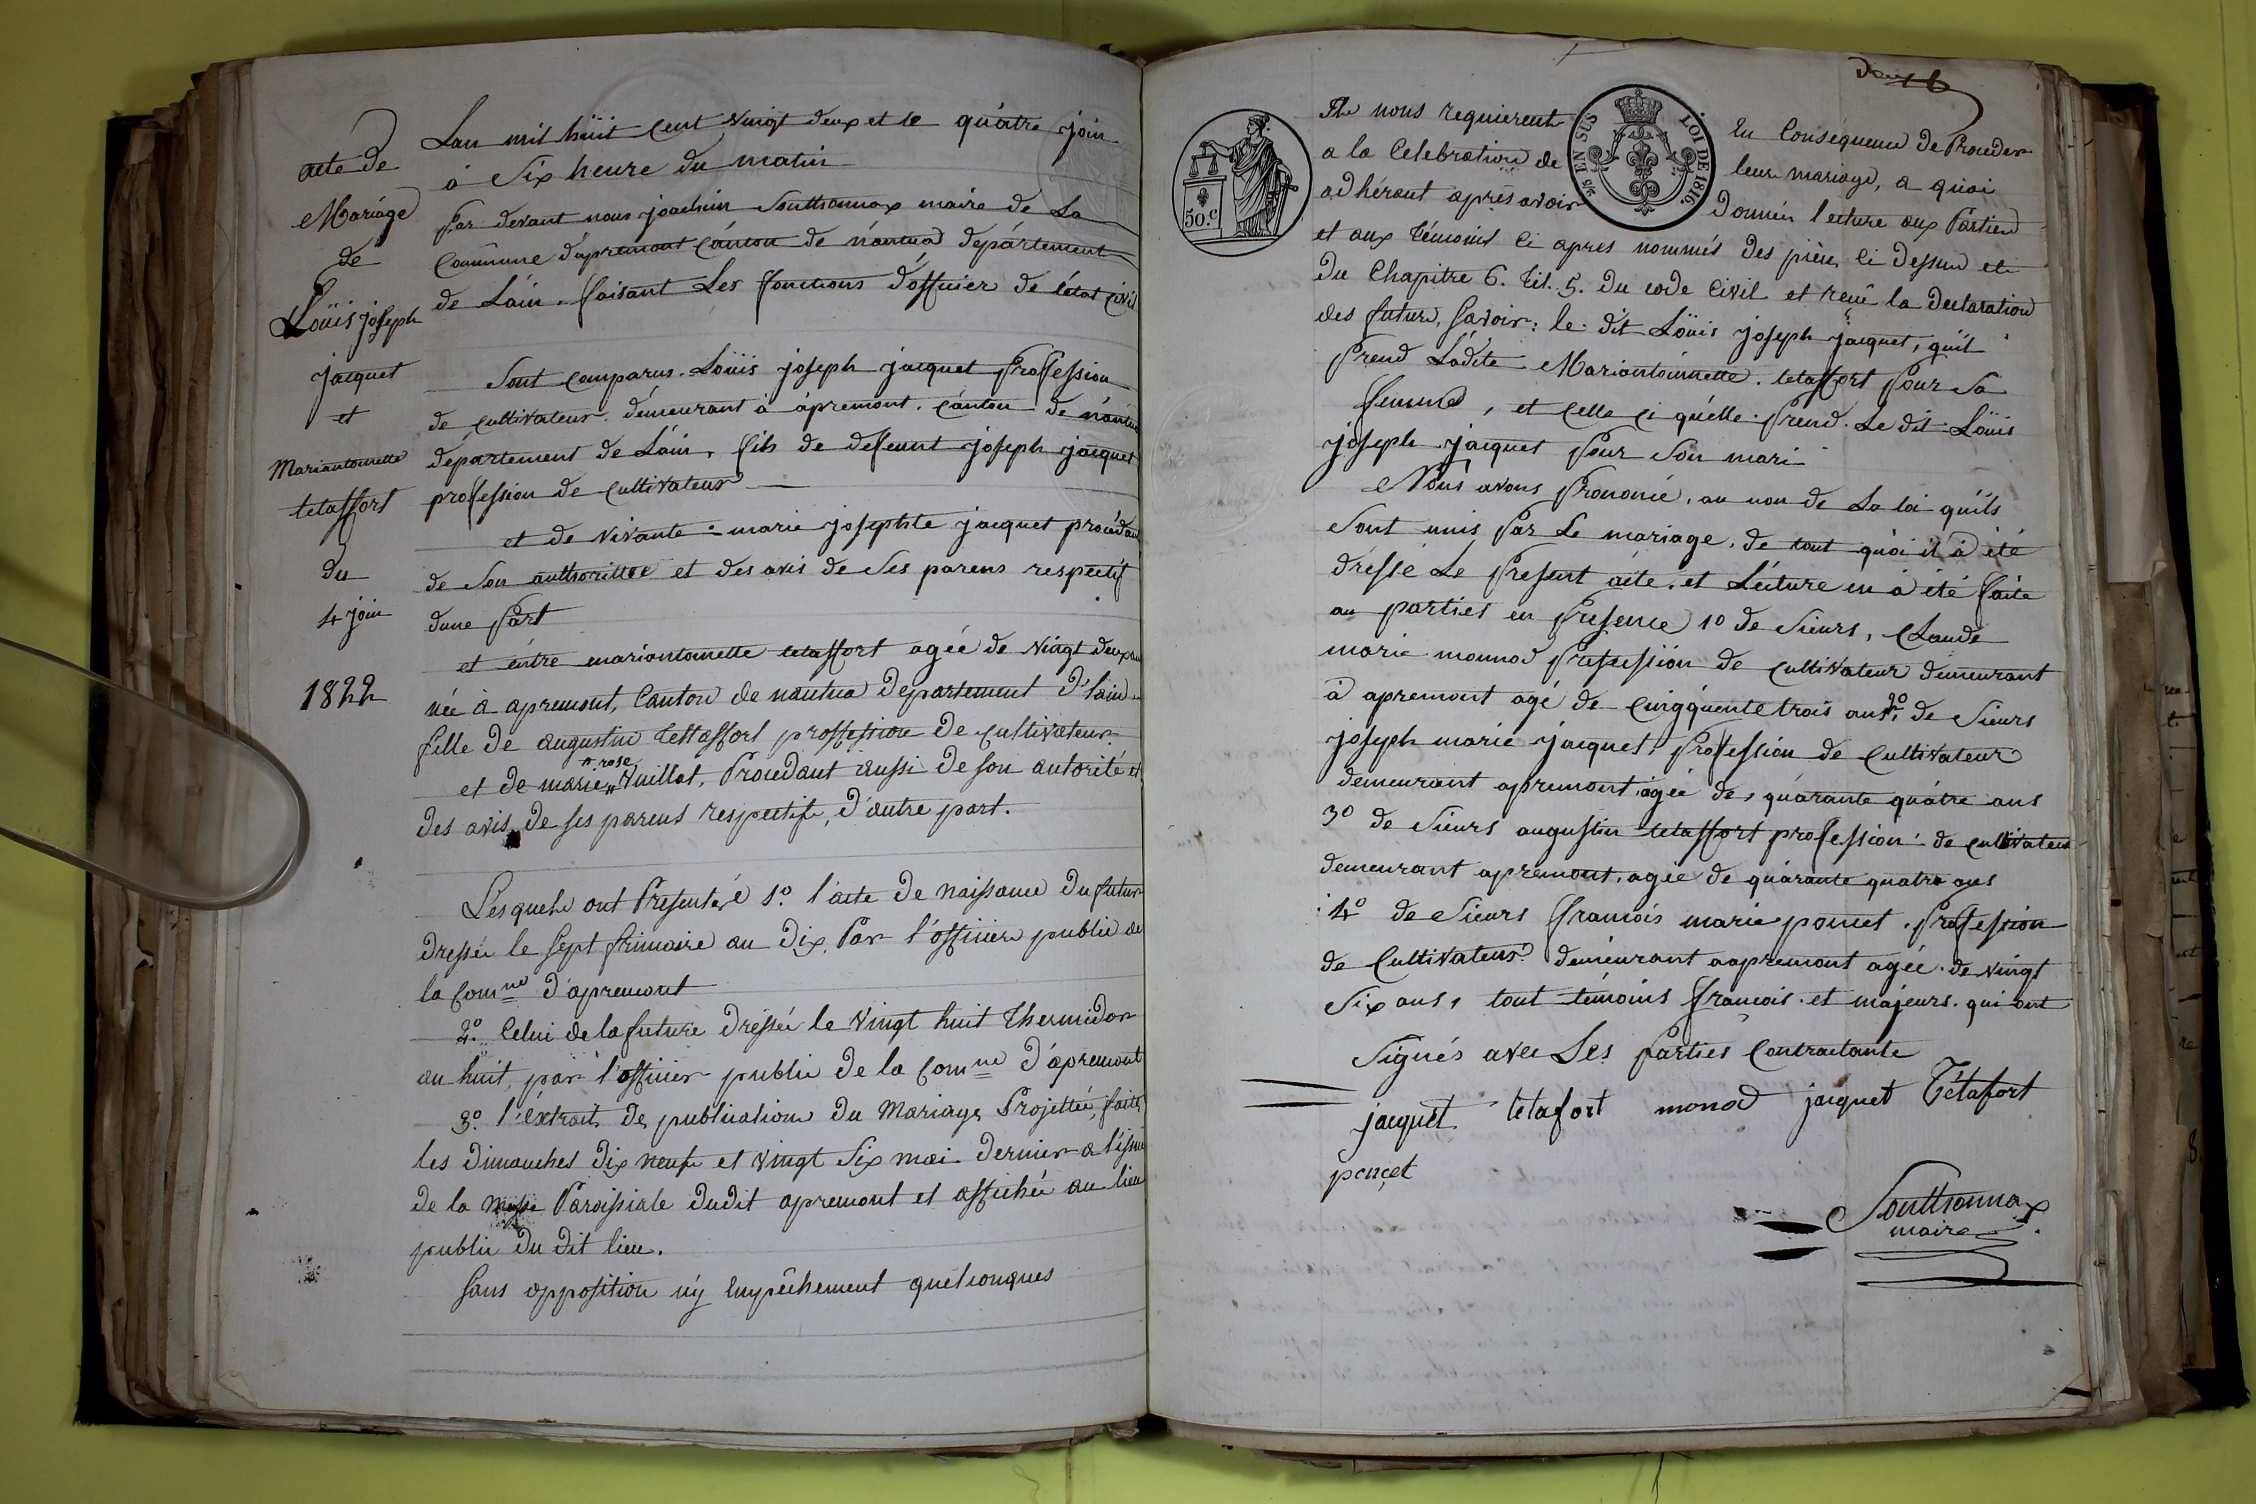 acte de
Mariage
de
Loüis joseph
jacquet
et
Mariantoinette
tetaffort
du
4 join
1822
Lan mil hüit Cent vingt deux et le quátre join
à Six heure du matin
Par devant nous joachim Souttonnax maire de La
Commune d'apremont Cánton de nántua départément
de Láin. faisant Les fonctions d'officier de létat civil
Sont comparus. Loüis joseph jacquet Profession
de cultivateur. démeurant à ápremont. cánton de nántua
département de Láin, fils de defeunt joseph jacquet
profession de cultivateur
et de vivante marie josephte jacquet procédan
de son authorittée et des avis de Ses parens respectif
dune Part
et éntre mariantoinette tetaffort agée de vingt deux an
née à apremont, Canton de nantua Departement d'lain
fille de augustin tettaffort proffession de cultivateur
et de marie " rose " Vuillot, Procedant aussi de son autorité et
des avis de ses parens respectifs, d'autre part.
Lesquels ont Présentéré 1.o l'acte de naissance du futur
dressée le sept frimaire an dix, Par l'officier public de
la Comne d'apremont
2.o Celui de la future dréssée le vingt huit Thermidor
an huit, par l'officier public de la comne d'apremont
3.o l'éxtrait de publication du Mariage Projettée, faite
les dimanches dix neuf et vingt Six mai dernier a l'issue
de la Messe Paroissiale dudit apremont et affichée au lieu
public du dit lieu.
sans opposition ny Empêchement quelconques
50.c
EN SUS
LOI DE 1816.
Ils nous requierent En Conséquence de Proceder
a la Celebration de leur mariage, a quoi
adhérant après avoir Donnée lecture aux Parties
et aux témoins ci apres nommés des pièces ci dessus et
du Chapitre 6. tit. 5. du code Civil et recu la declaration
des futurs, savoir: le dit Loüis joseph jacquet, quil
Prend Ladite Mariantoinnette. tetaffort Pour Sa
femme, et celle ci quélle Prend. Le dit Loüis
joseph jacquet Pour Son mari
Nous avons Prononcé, au non de La loi quils
Sont unis Par Le mariage, de tout quoi il à été
dréssé Le Present acte. et Lécture en à été faite
au parties en Presence 1o de Sieurs, Claude
marie monnod Profession de cultivateur demeurant
à apremont agé de cinqquente trois ans, 2o de Sieurs
joseph marie jacquet, Profession de cultivateur
demeurant apremont agée de, quárante quátre ans
3o de Sieurs augustin tetaffort profession de cultivateur
demeurant apremont, agée de quárante quatre ans
4o de Sieurs francois marie poncet. Profession
de Cultivateur déméurant aapremont agée. de vingt
Six ans, tout témoins francois. et majeurs. qui ont
Signés avec Les Parties Contractante
jacquet tétafort monod jacquet Tétafort
poncet
Souttonnax
maire